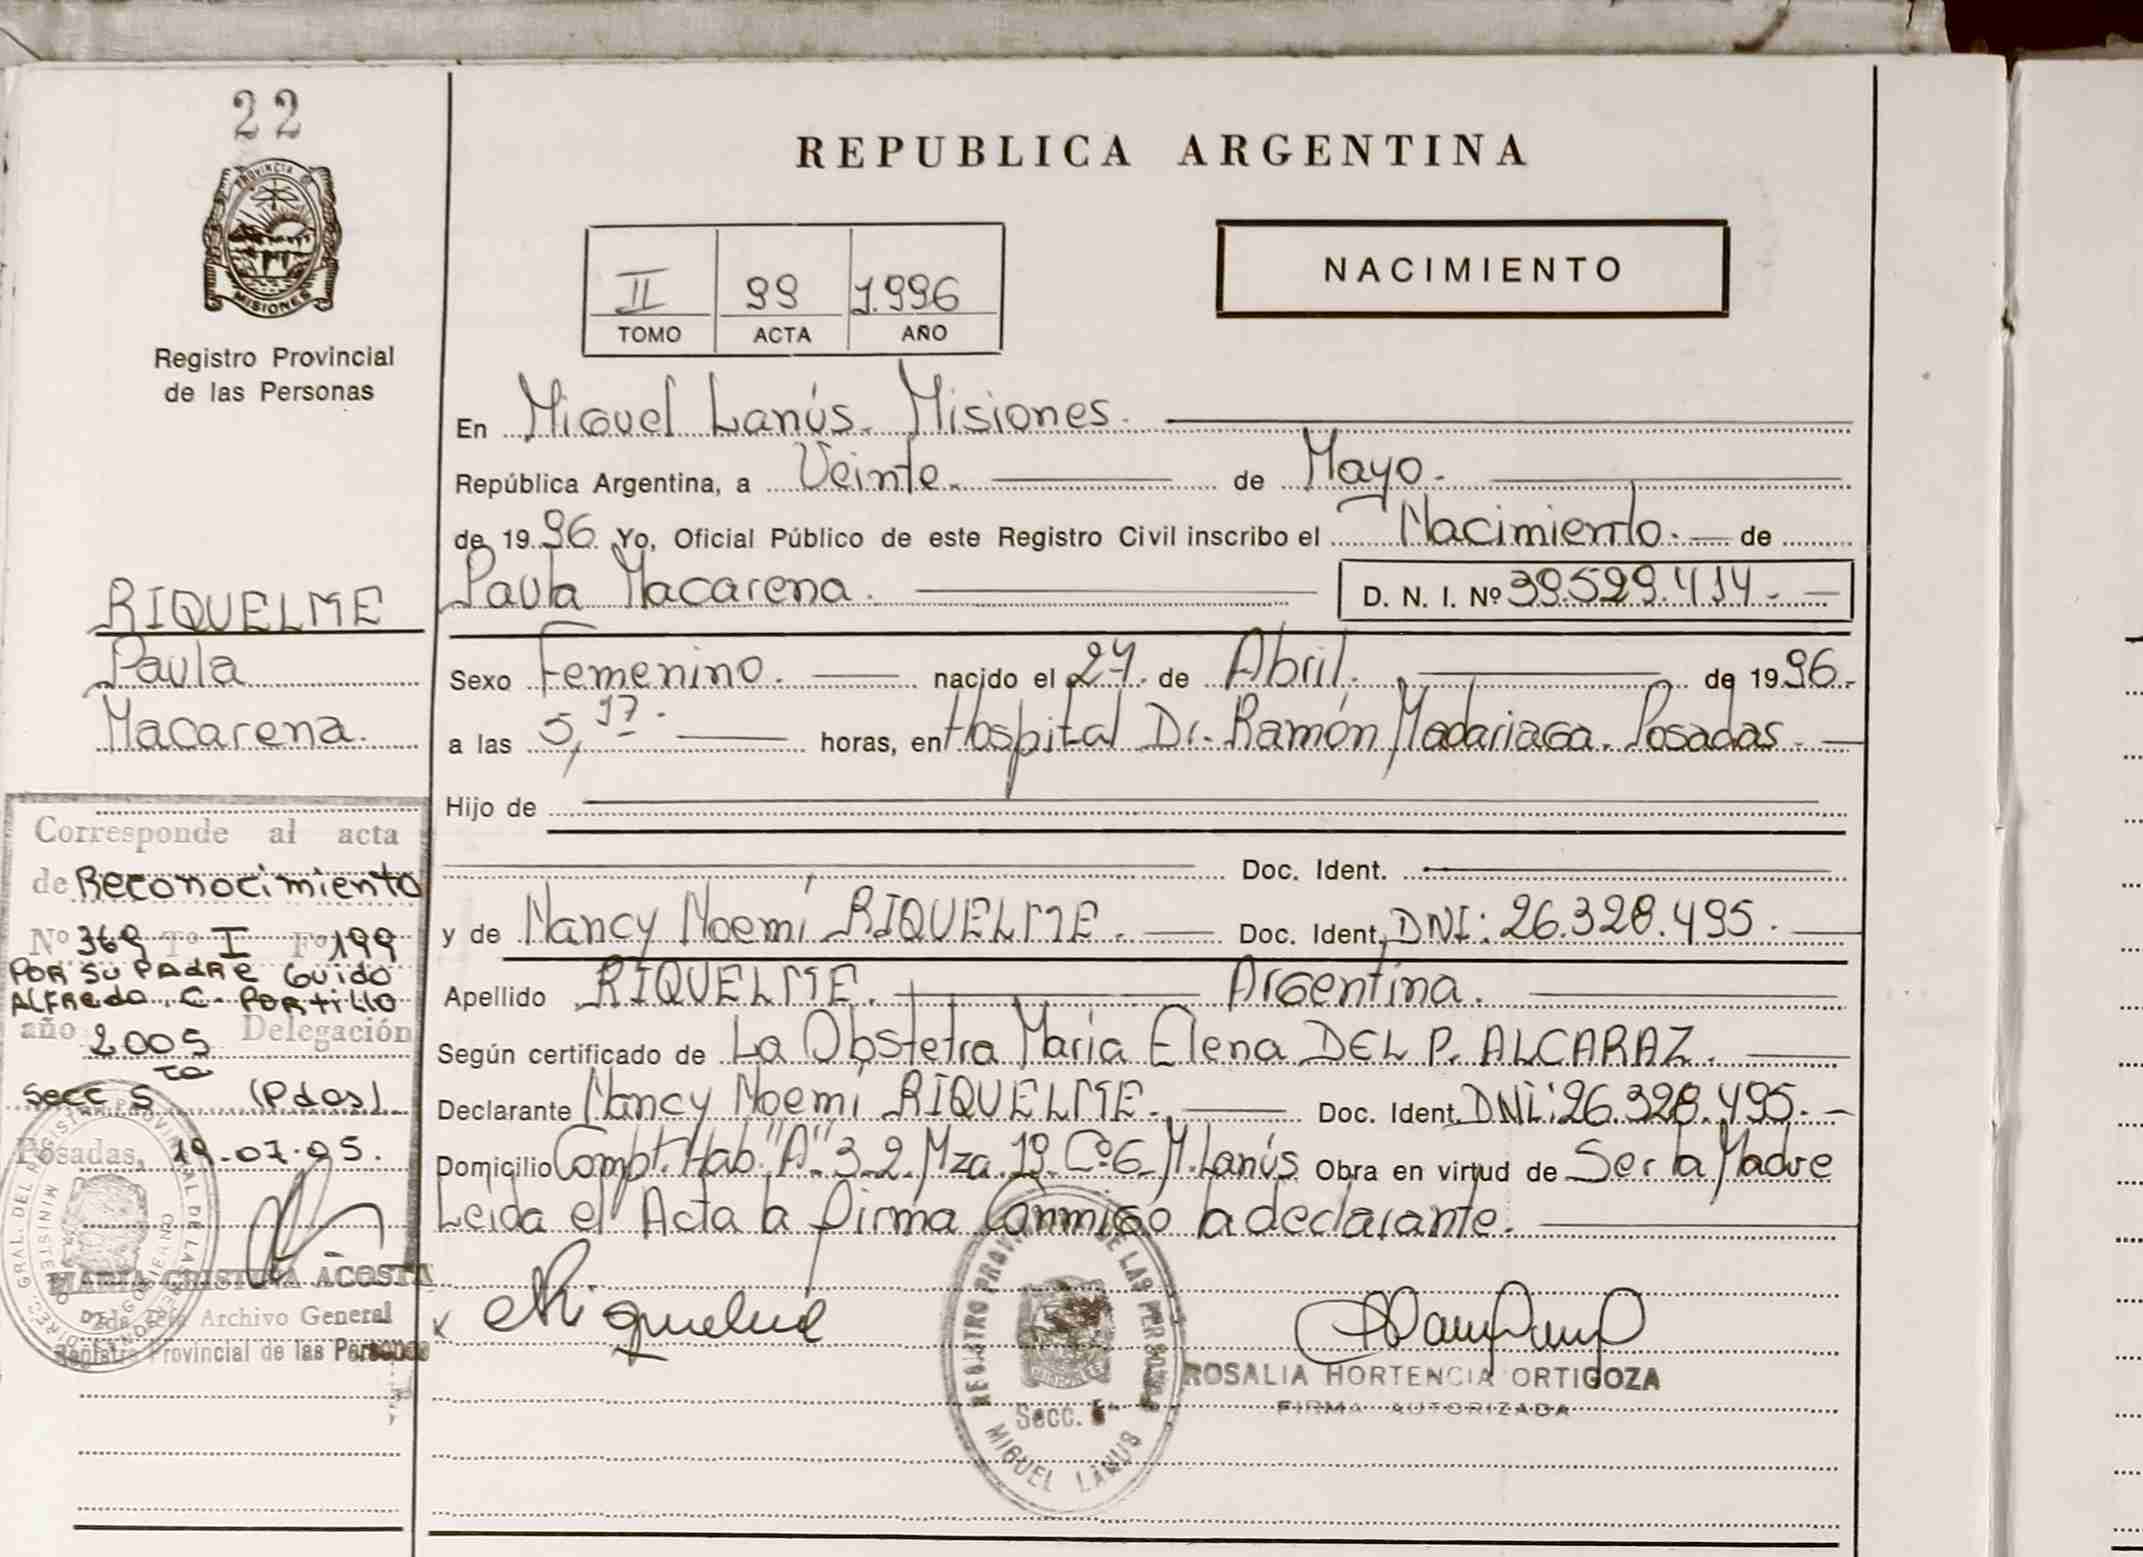 22
PROVINCIA DE
MISIONES
Registro Provincial
de las Personas
RIQUELME
Paula
Macarena.
Corresponde al acta
de Reconocimiento
Nº 369 Tº I Fº 199
POR SU PADRE GUIDO
ALFREDO C. PORTILLO
año 2005 Delegación
Secc 5ta (Pdas).
Posadas, 19-07-05.
MARIA CRISTINA ACOSTA
Archivo General
Registro Provincial de las Personas
REPUBLICA ARGENTINA
II 99 1.996
TOMO ACTA AÑO
NACIMIENTO
En Miguel Lanús. Misiones.
República Argentina, a Veinte. de Mayo.
de 1996. Yo, Oficial Público de este Registro Civil inscribo el Nacimiento. de
Paula Macarena. D. N. I. Nº 39.529.414.
Sexo Femenino. nacido el 27. de Abril. de 1996.
a las 5,17. horas, en Hospital Dr. Ramón Madariaga. Posadas.
Hijo de
Doc. Ident.
y de Nancy Noemí RIQUELME. Doc. Ident. DNI: 26.328.495.
Apellido RIQUELME. Argentina.
Según certificado de La Obstetra María Elena DEL P. ALCARAZ.
Declarante Nancy Noemí RIQUELME. Doc. Ident. DNI: 26.328.495.
Domicilio Compl. Hab. "A" 3-2. Mza. 19. Cº 6. M. Lanús Obra en virtud de Ser la Madre
Leida el Acta la firma Conmigo la declarante.
Riquelme
REGISTRO PROVINCIAL DE LAS PERSONAS
Secc. 5ª
MIGUEL LANUS
ROSALIA HORTENCIA ORTIGOZA
FIRMA AUTORIZADA